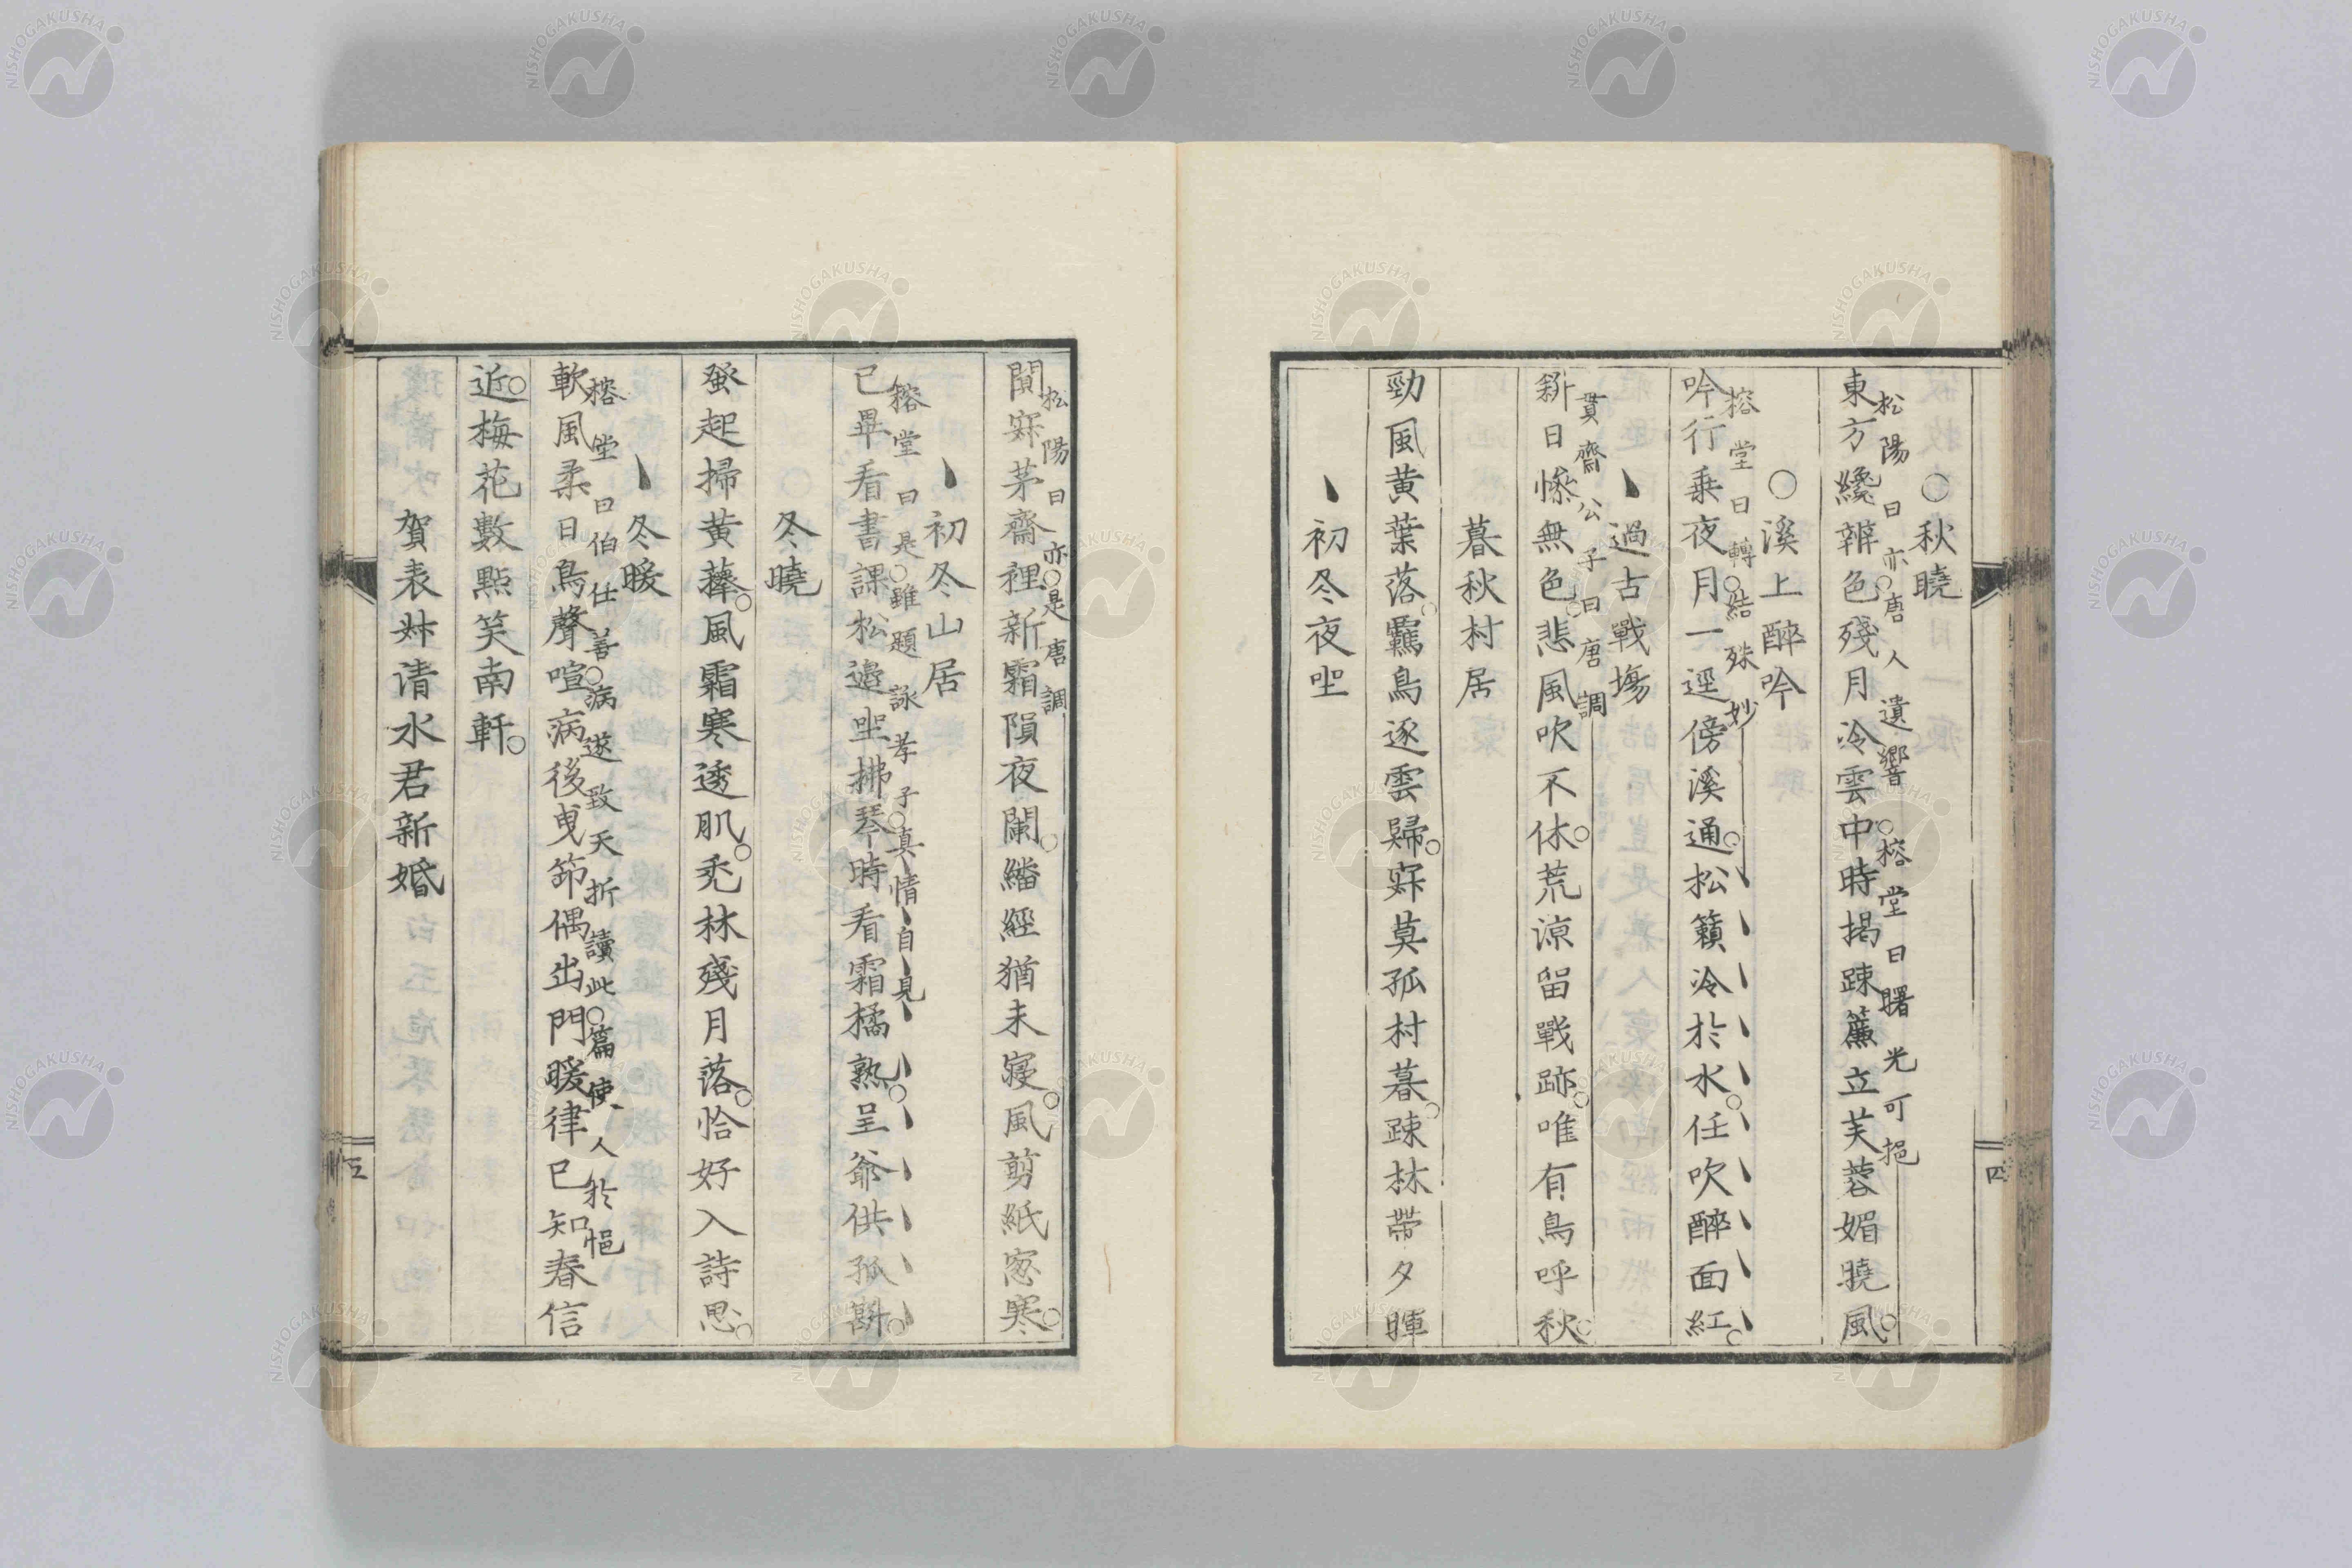 ○秋曉
東方纔辨色殘月冷雲中時揭踈簾立芙蓉媚曉風
松陽曰亦唐人遺響○榕堂曰曙光可挹
○溪上醉吟
吟行乗夜月一逕傍溪通松籟冷於水任吹醉面紅
榕堂曰轉結殊妙
過古戰塲
斜日慘無色悲風吹不休荒涼留戰跡唯有鳥呼秋
貫齋公子曰唐調
暮秋村居
勁風黄葉落羈鳥逐雲歸寂莫孤村暮踈林帶夕暉
初冬夜坐
闃寂茅齋裡新霜隕夜闌繙經猶未寢風剪紙窓寒
松陽曰亦是唐調
初冬山居
已畢看書課松邉坐拂琴時看霜橘熟呈爺供孤斟
榕堂曰是雖題詠孝子真情自見
冬曉
蚤起掃黄蘀風霜寒透肌禿林殘月落恰好入詩思
冬暖
軟風柔日鳥聲喧病後曳笻偶出門暖律已知春信
榕堂曰伯仕善病遂致夭折讀此篇使人於悒
近梅花數點笑南軒
賀表姉清水君新婚
四
五
NISHOGAKUSHA